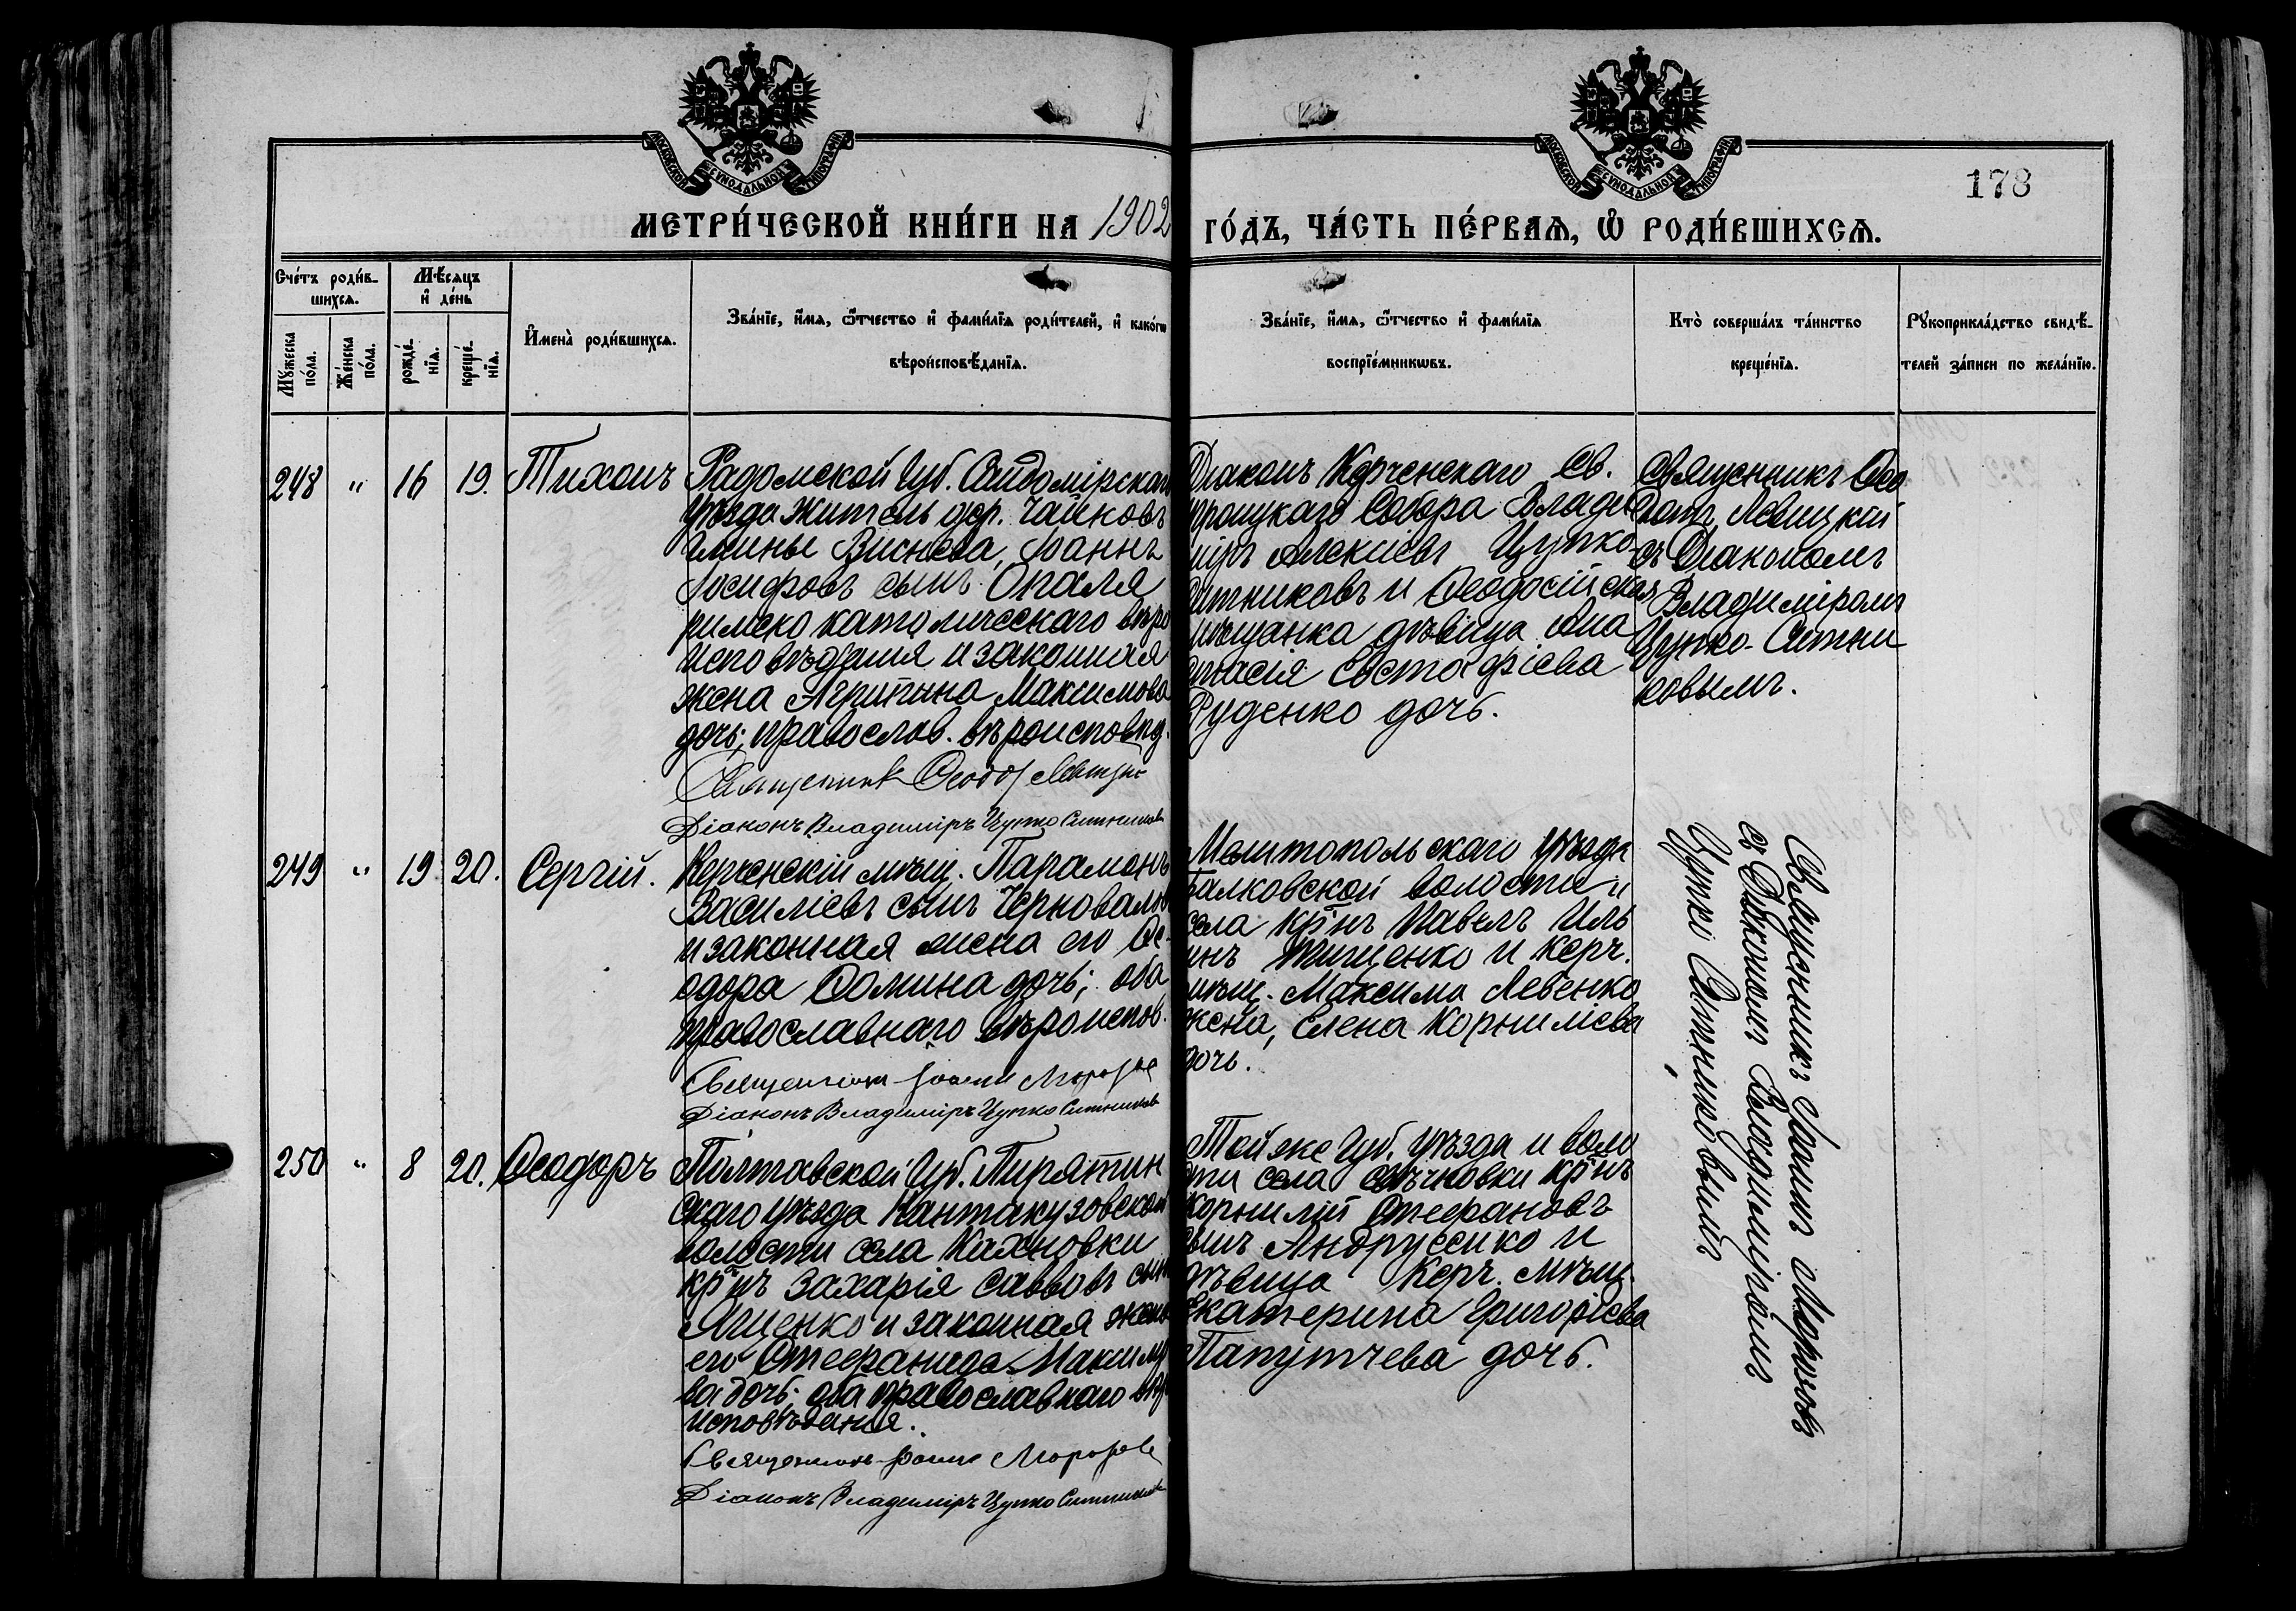 МОСКОВСКОЙ СѴНОДАЛЬНОЙ ТИПОГРАФІИ
МОСКОВСКОЙ СѴНОДАЛЬНОЙ ТИПОГРАФІИ
178
МЕТРИ́ЧЕСКОЙ КНИ́ГИ НА 1902 ГО́ДЪ, ЧА́СТЬ ПЕ́РВАѦ, Ѽ РОДИ́ВШИХСѦ.
Сче́тъ роди́в-
шихсѧ.
Мꙋжеска по́ла.
Же́нска по́ла.
Мѣ́сѧцъ
и҆ де́нь
рожде́-
нїѧ.
креще́-
нїѧ.
И҆мена̀ роди́вшихсѧ.
Зва́нїе, и҆́мѧ, ѻ҆́тчество и҆ фами́лїѧ роди́телей, и҆ како́гѡ
вѣроисповѣ́данїѧ.
Зва́нїе, и҆́мѧ, ѻ҆́тчество и҆ фами́лїѧ
воспрїе́мникѡвъ.
Кто̀ соверша́лъ та́инство
креще́нїѧ.
Рꙋкоприкла́дство свидѣ́-
телей за́писи по жела́нїю.
248 " 16 19. Тихонъ
Радомской Губ. Сандомірскаго
уѣзда житель дер. Чайковъ
гмины Виснева, Іоаннъ
Іосифовъ сынъ Опаля
римско католическаго вѣро
исповѣданія и законная
жена Агрипина Максимова
дочь; православ. вѣроисповѣд.
Священникъ Ѳеодотъ Левицкій
Діаконъ Владиміръ Цупко Ситниковъ
Діаконъ Керченскаго Св.
Троицкаго Собора Влади
міръ Алексіевъ Цупко-
Ситниковъ и Ѳеодосійская
мѣщанка дѣвица Ана
стасія Евстафіева
Руденко дочь.
Священникъ Ѳео
дотъ Левицкій
съ Діакономъ
Владиміромъ
Цупко-Ситни
ковымъ.
249 " 19 20. Сергій.
Керченскій мѣщ. Парамонъ
Василіевъ сынъ Черноваловъ
и законная жена его Ѳе-
одора Ѳомина дочь; оба
православнаго вѣроиспов.
Священникъ Іоаннъ Морозовъ
Діаконъ Владиміръ Цупко Ситниковъ
Мелитопольскаго уѣзда
Балковской волости и
села кр-нъ Павелъ Иль
инъ Тищенко и керч.
мѣщ. Максима Левенко
жена, Елена Корниліева
дочь.
Священникъ Іоаннъ Морозовъ
съ Діакономъ Владиміромъ
Цупко Ситниковымъ
250 " 8 20. Ѳеодоръ
Полтавской Губ. Пирятин
скаго уѣзда Кантакузовской
волости села Кахновки
кр-нъ Захарія Саввовъ сынъ
Яценко и законная жена
его Стефанида Максимо
ва дочь; оба православнаго вѣро
исповѣданія.
Священникъ Іоаннъ Морозовъ
Діаконъ Владиміръ Цупко Ситниковъ
Той же Губ. уѣзда и воло
сти села кр-нъ
Корнилій Стефановъ
сынъ Андрусенко и
дѣвица Керч. мѣщ.
Екатерина Григоріева
Папутчева дочь.